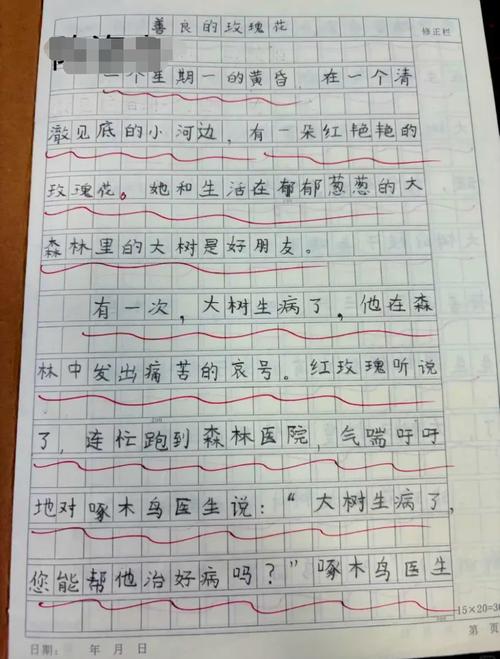 善良的玫瑰花
修正栏
一个星期一的黄昏，在一个清
澈见底的小河边，有一朵红艳艳的
玫瑰花。她和生活在郁郁葱葱的大
森林里的大树是好朋友。
有一次，大树生病了，他在森
林中发出痛苦的哀号。红玫瑰听说
了，连忙跑到森林医院，气喘吁吁
地对啄木鸟医生说：“大树生病了，
您能帮他治好病吗？”啄木鸟医生
15×20=30
日期： 年 月 日
第 页